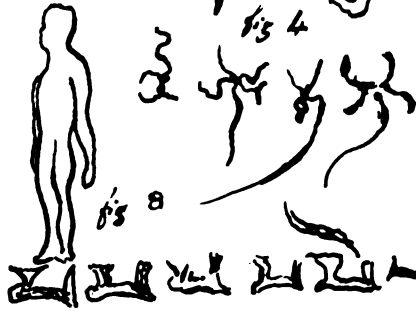 fig 4
fig 8